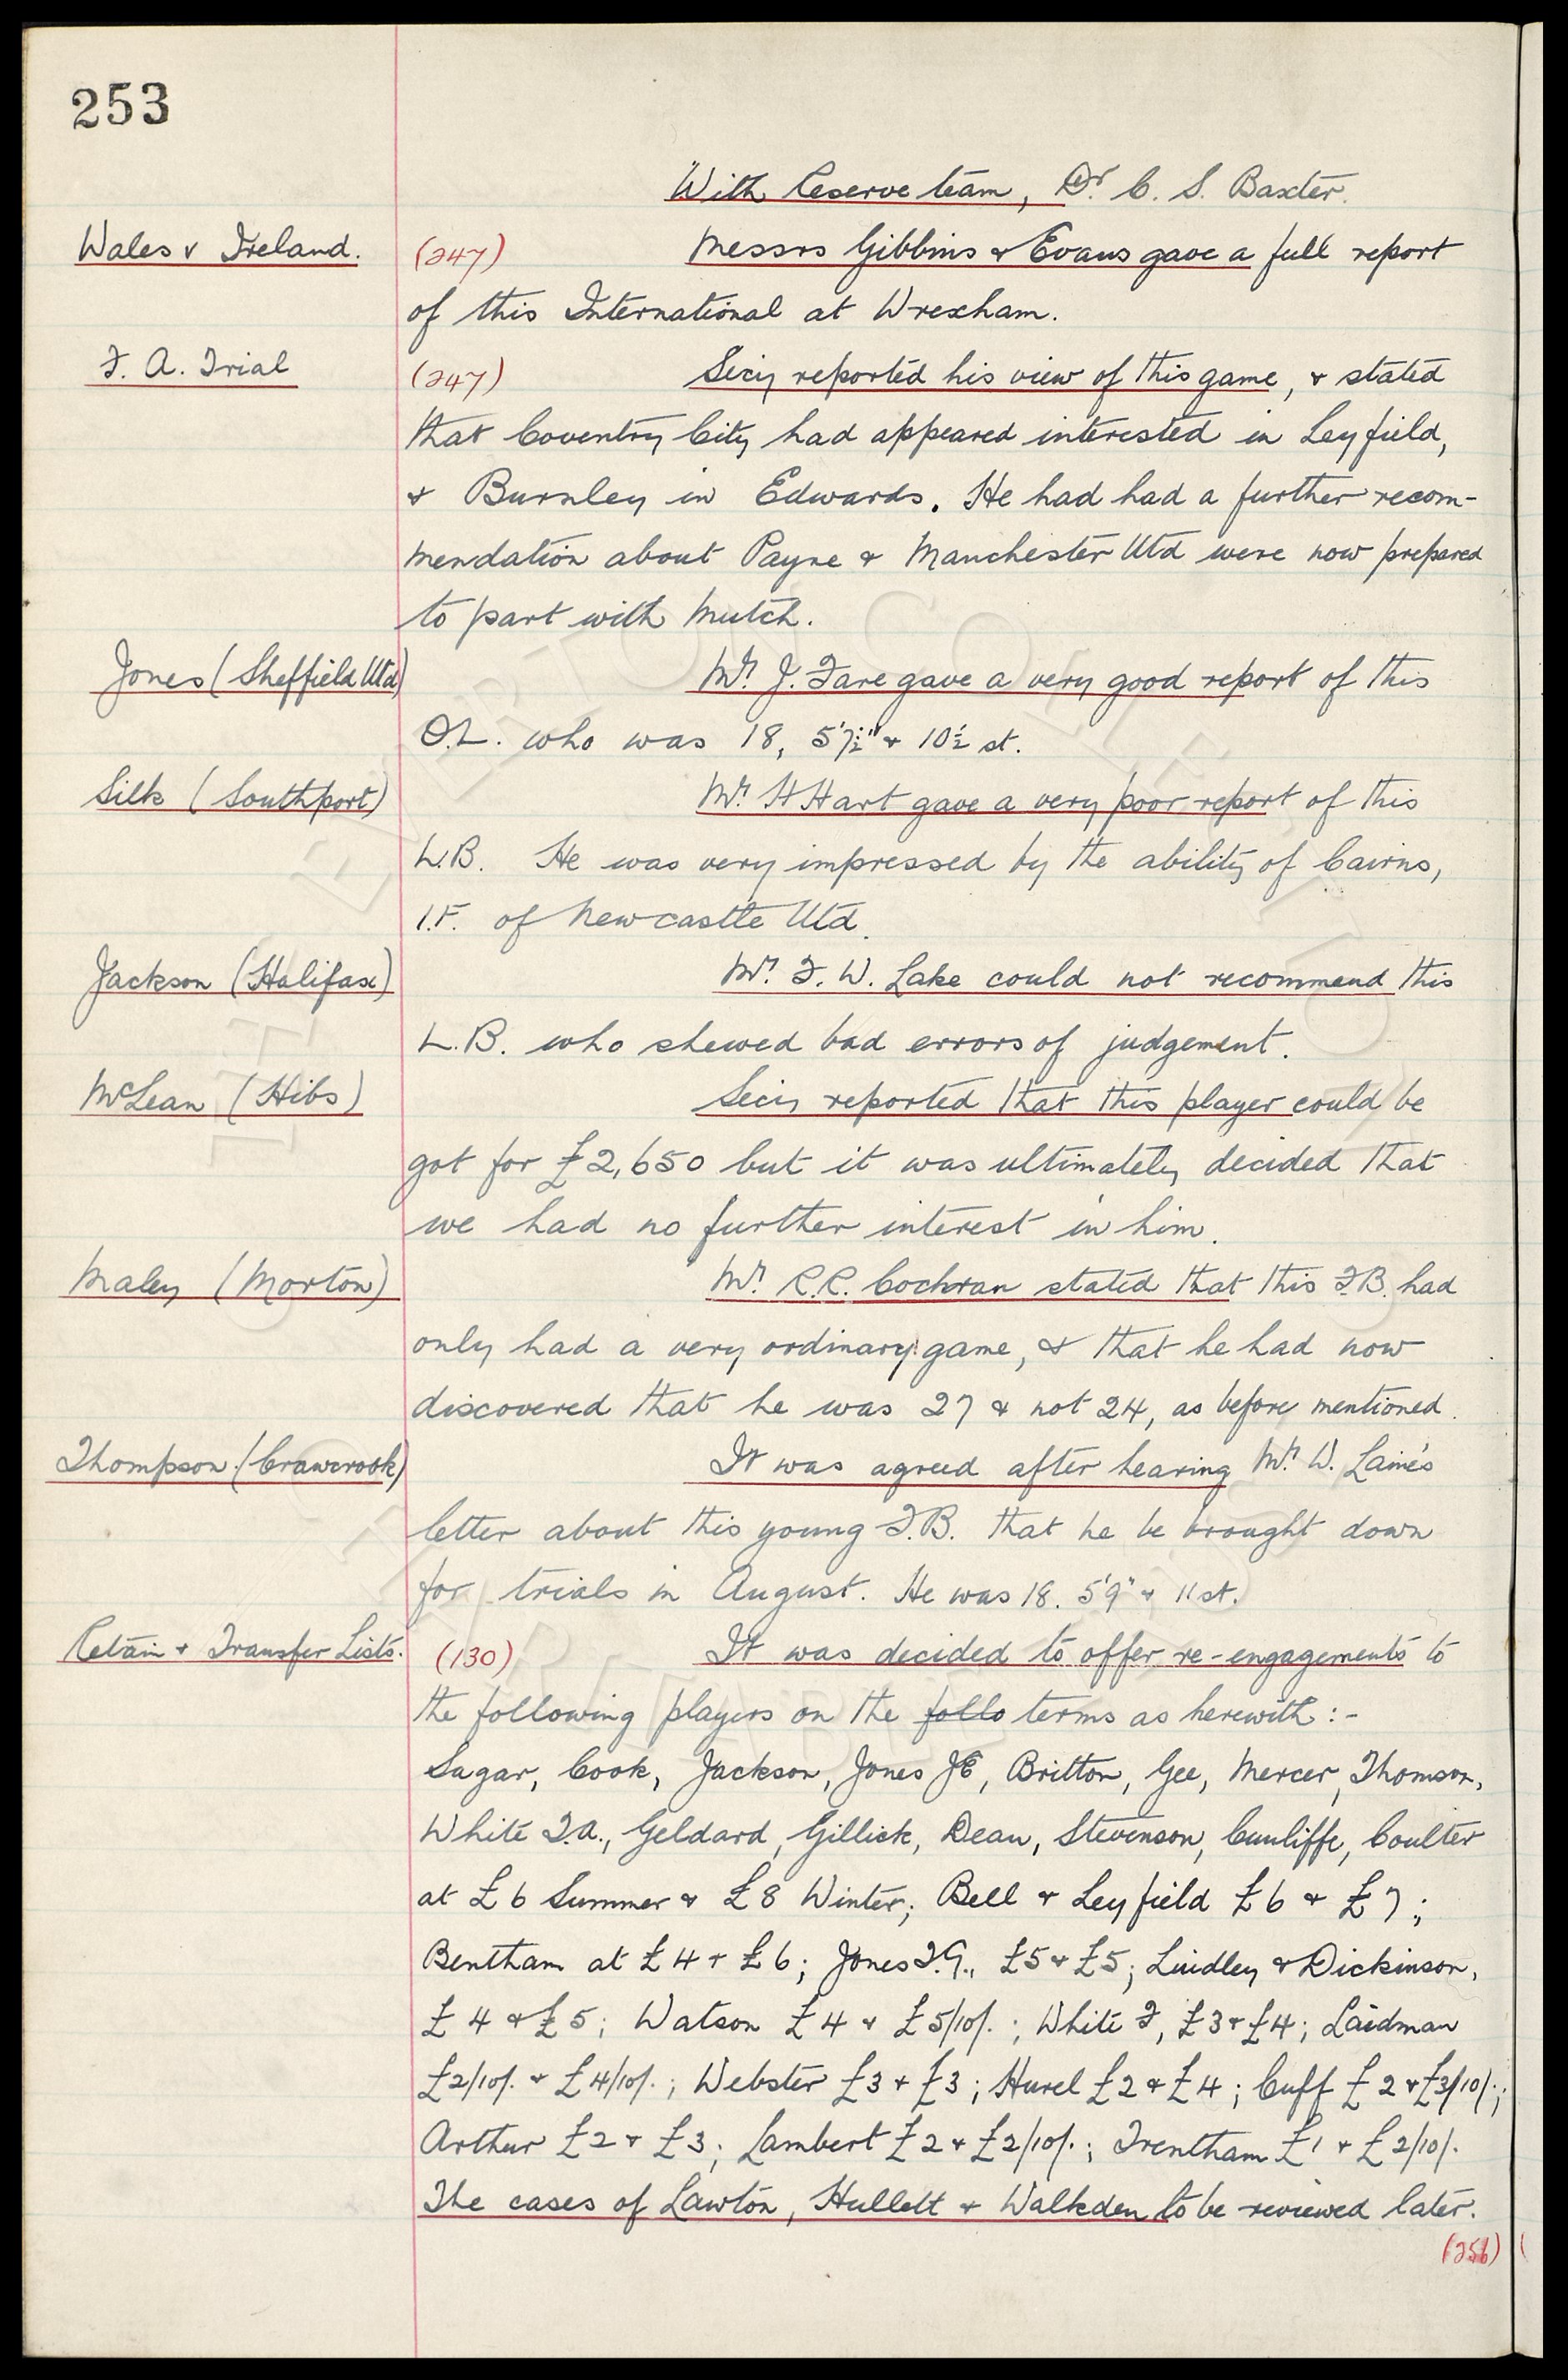 253
With Reserve team, Dr. C. S. Baxter.
Wales v Ireland. (247) Messrs Gibbins & Evans gave a full report
of this International at Wrexham.
F. A. Trial (247) Secy reported his view of this game, & stated
that Coventry City had appeared interested in Leyfield,
& Burnley in Edwards. He had had a further recom-
mendation about Payne & Manchester Utd were now prepared
to part with Mutch.
Jones (Sheffield Utd) Mr. J. Fare gave a very good report of this
O.L. who was 18, 5'7½" & 10½ st.
Silk (Southport) Mr. H Hart gave a very poor report of this
L.B. He was very impressed by the ability of Cairns,
I.F. of Newcastle Utd.
Jackson (Halifax) Mr. F. W. Lake could not recommend this
L.B. who shewed bad errors of judgement.
McLean (Hibs) Secy reported that this player could be
got for £2,650 but it was ultimately decided that
we had no further interest in him.
Maley (Morton) Mr. R.R. Cochran stated that this F.B. had
only had a very ordinary game, & that he had now
discovered that he was 27 & not 24, as before mentioned.
Thompson (Crawcrook) It was agreed after hearing Mr. W. Laine's
letter about this young F.B. that he be brought down
for trials in August. He was 18. 5'9" & 11 st.
Retain & Transfer Lists. (130) It was decided to offer re-engagements to
the following players on the follo terms as herewith :-
Sagar, Cook, Jackson, Jones JE, Britton, Gee, Mercer, Thomson,
White T.A., Geldard, Gillick, Dean, Stevenson, Cunliffe, Coulter
at £6 Summer & £8 Winter; Bell & Leyfield £6 & £7;
Bentham at £4 & £6; Jones T.G., £5 & £5; Lindley & Dickinson,
£4 & £5; Watson £4 & £5/10/-; White F, £3 & £4; Laidman
£2/10/- & £4/10/-; Webster £3 & £3; Hurel £2 & £4; Cuff £2 & £3/10/-;
Arthur £2 & £3; Lambert £2 & £2/10/-; Trentham £1 & £2/10/-
The cases of Lawton, Hullett & Walkden to be reviewed later.
(256)